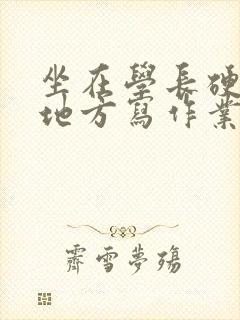 坐在學長硬
地方寫作業
霽雪夢殤